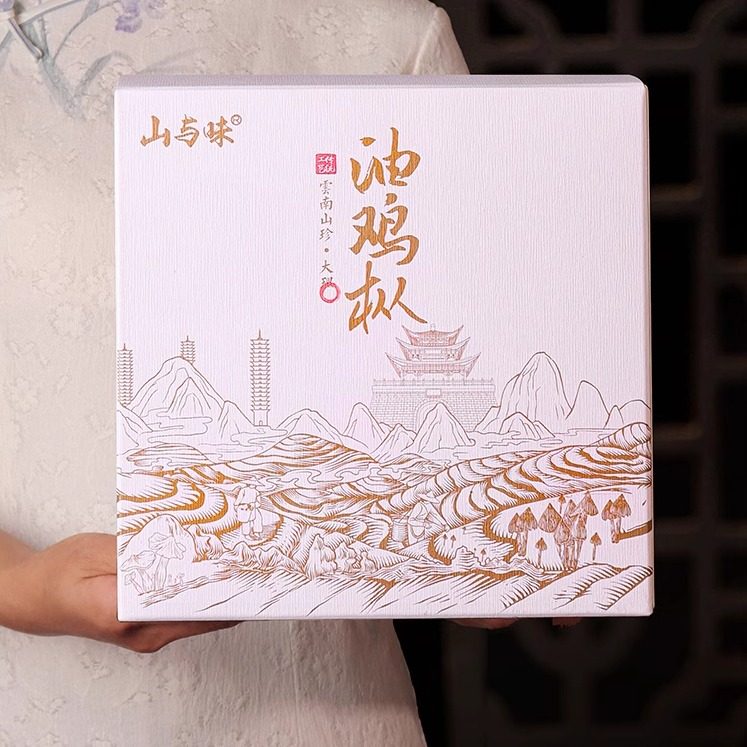 山与味
油鸡枞
传统工艺
雲南山珍·大理